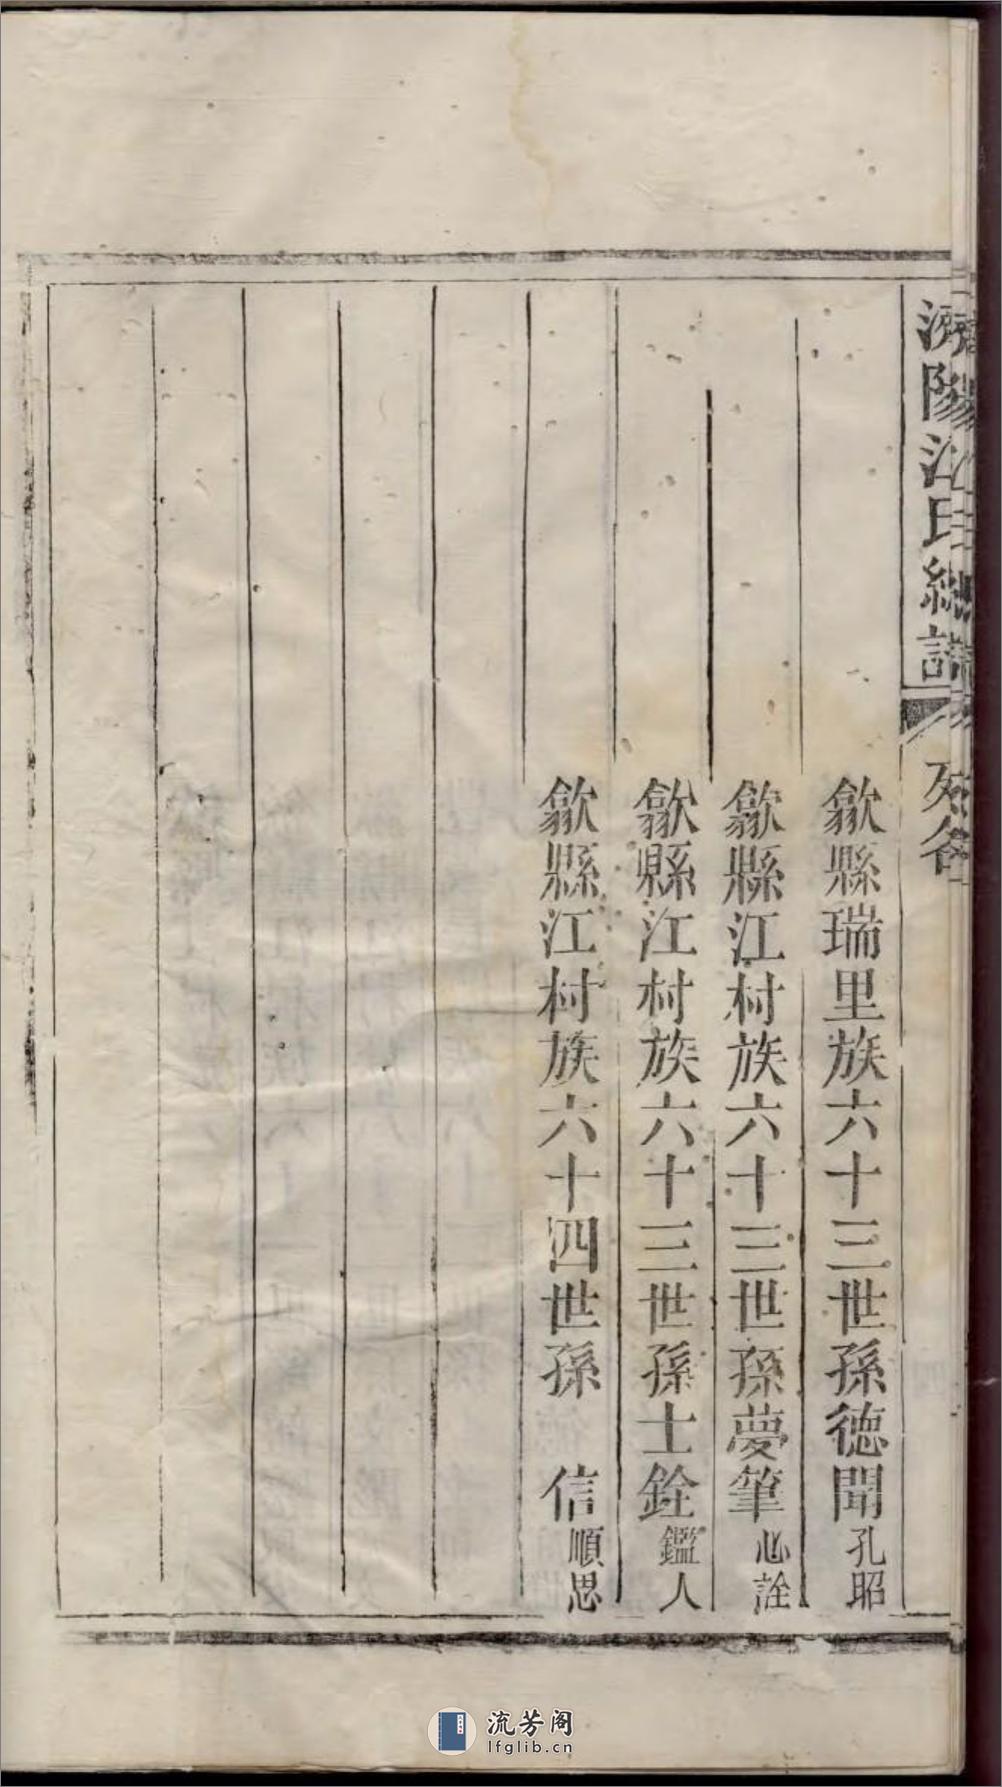 濟陽江氏總譜
列名
歙縣瑞里族六十三世孫德聞孔昭
歙縣江村族六十三世孫夢筆心詮
歙縣江村族六十三世孫士銓鑑人
歙縣江村族六十四世孫　信順思
流芳阁
lfglib.cn